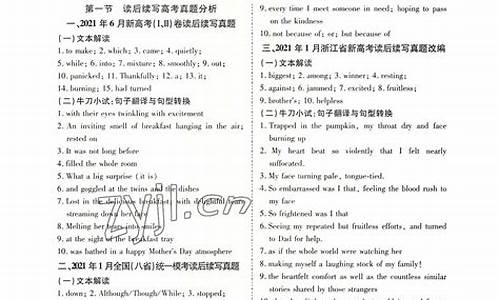 第一节 读后续写高考真题分析
一、2021年6月新高考(Ⅰ、Ⅱ)卷读后续写真题
(一)文本解读
1. to make; 2. which; 3. came; 4. quietly;
5. while; 6. into; 7. mixture; 8. smoothly; 9. out;
10. panicked; 11. Thankfully; 12. a; 13. it;
14. burning; 15. had turned
(二)牛刀小试:句子翻译与句型转换
1. with their eyes twinkling with excitement
2. An inviting smell of breakfast hanging in the air;
rested on
3. It was not long before
4. filled the whole room
5. What a big surprise (it is)
6. and goggled at the twins and the dishes
7. Lost in the delicious breakfast, with delightful tears
streaming down her face
8. Melting her tears into smiles
9. at the sight of the breakfast tray
10. was bathed in a happy Mother's Day atmosphere
二、2021年1月全国(八省)统一模考读后续写真题
(一)文本解读
1. down; 2. Although/Though/While; 3. stopped;
9. every time I meet someone in need; hoping to pass
on the kindness
10. not because of; or; but because of
三、2021年1月浙江省新高考读后续写真题改编
(一)文本解读
1. biggest; 2. among; 3. winner; 4. resting;
5. against; 6. jammed; 7. excited; 8. fruitless;
9. brother's; 10. helpless
(二)牛刀小试:句子翻译与句型转换
1. Trapped in the pumpkin, my throat dry and face
burning up
2. My heart beat so violently that I felt nearly
suffocated.
3. My face turning pale, tongue-tied.
4. So embarrassed was I that, feeling the blood rush to
my face
5. So frightened was I that
6. Seeing my repeated but fruitless efforts, and turned
to Dad for help.
7. as if the whole world were watching her
8. making myself a laughing stock of my family!
9. the heartfelt comfort as well as the countless similar
stories shared by those strangers
zyjl.cn